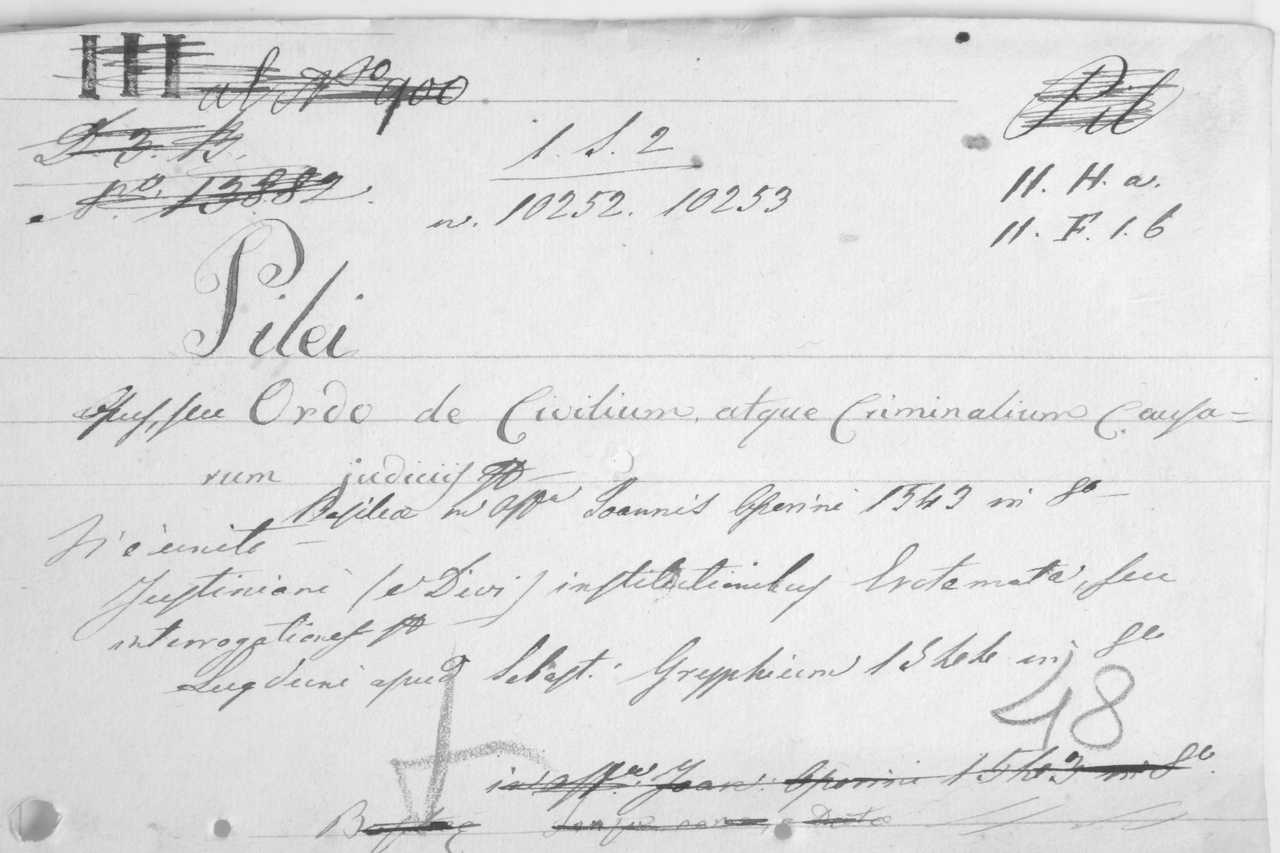 III al Nro 900
Pil
D. 3. B.
1. S. 2
no. 13882.
11. H. a.
n. 10252. 10253
11. F. 1. 6
Pilei
Opus, seu Ordo de Civilium, atque Criminalium Causa=
rum judiciis
Basileæ in offna Joannis Oporini 1543 in 8o
Vi è unito
Justiniani (e Divi) institutionibus Erotemata, seu
interrogationes
Lugduni apud Sebast: Gryphium 1544 in 8o
48
in offna Joan: Oporini 1543 in 8o.